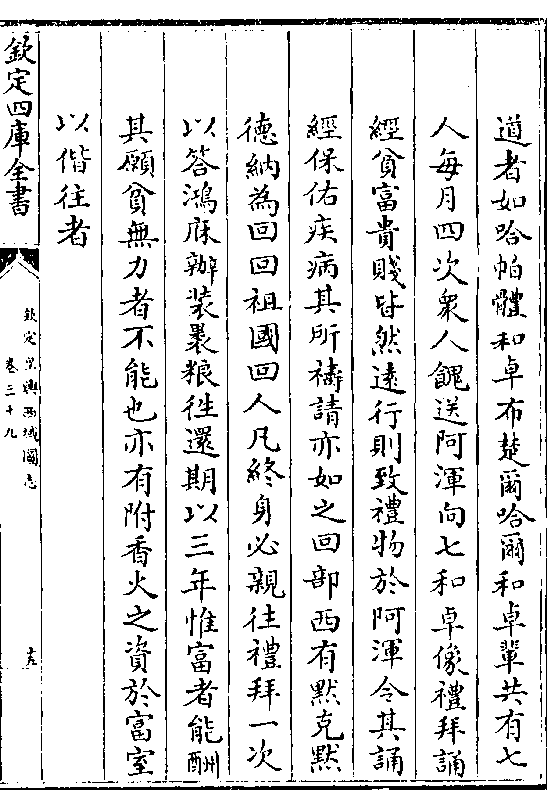 道者如哈帕體和卓布楚爾哈爾和卓輩共有七
人每月四次衆人餽送阿渾向七和卓像禮拜誦
經貧富貴賤皆然遠行則致禮物於阿渾令其誦
經保佑疾病其所禱請亦如之回部西有黙克黙
德納為回回祖國回人凡終身必親往禮拜一次
以答鴻庥辦装裹粮徃還期以三年惟富者能酬
其願貧無力者不能也亦有附香火之資於富室
以偕往者
欽定四庫全書
欽定皇輿西域圖志
卷三十九
十五